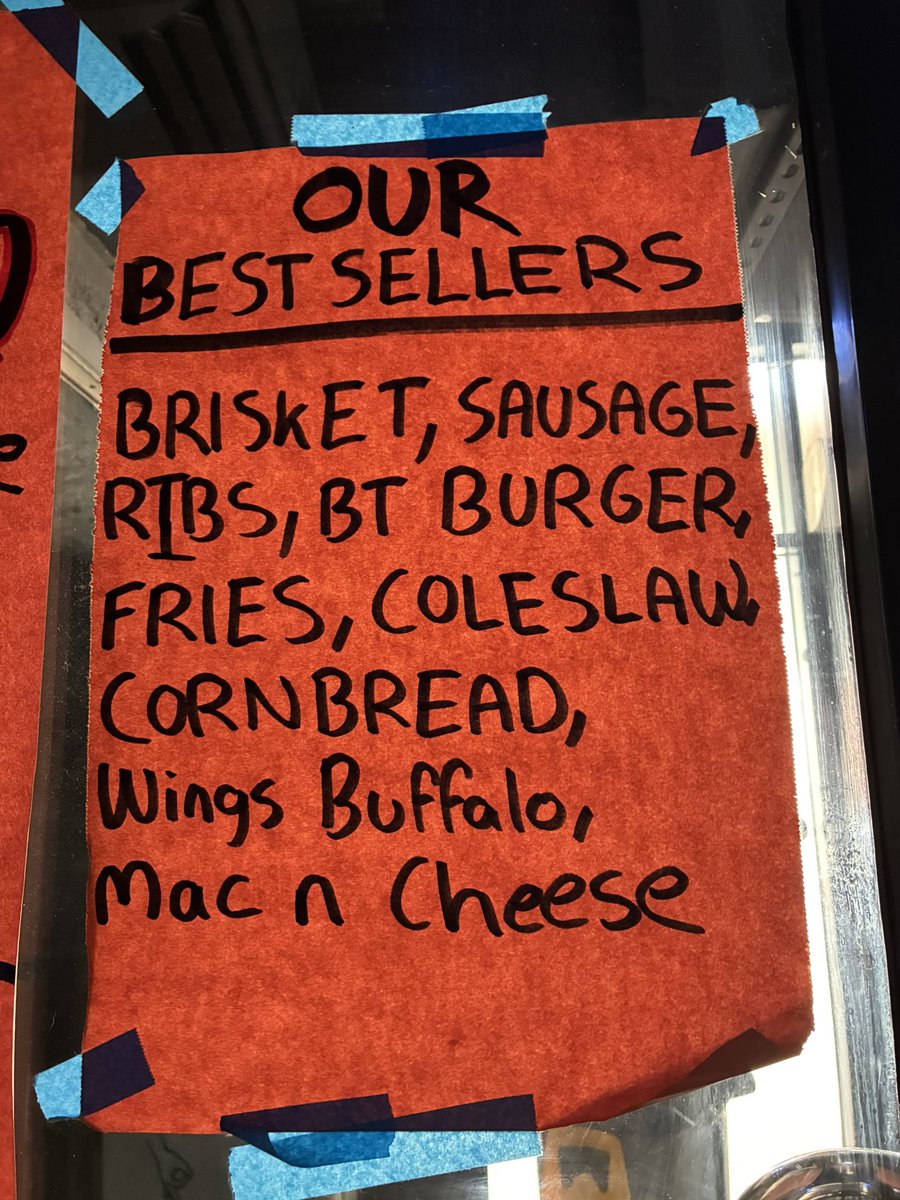 OUR
BEST SELLERS
BRISKET, SAUSAGE,
RIBS, BT BURGER,
FRIES, COLESLAW,
CORNBREAD,
Wings Buffalo,
Mac n Cheese